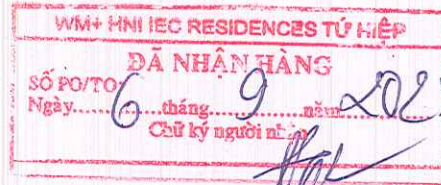 WM+ HNI IEC RESIDENCES TỨ HIỆP
ĐÃ NHẬN HÀNG
SỐ PO/TO:
Ngày 6 tháng 9 năm 202
Chữ ký người